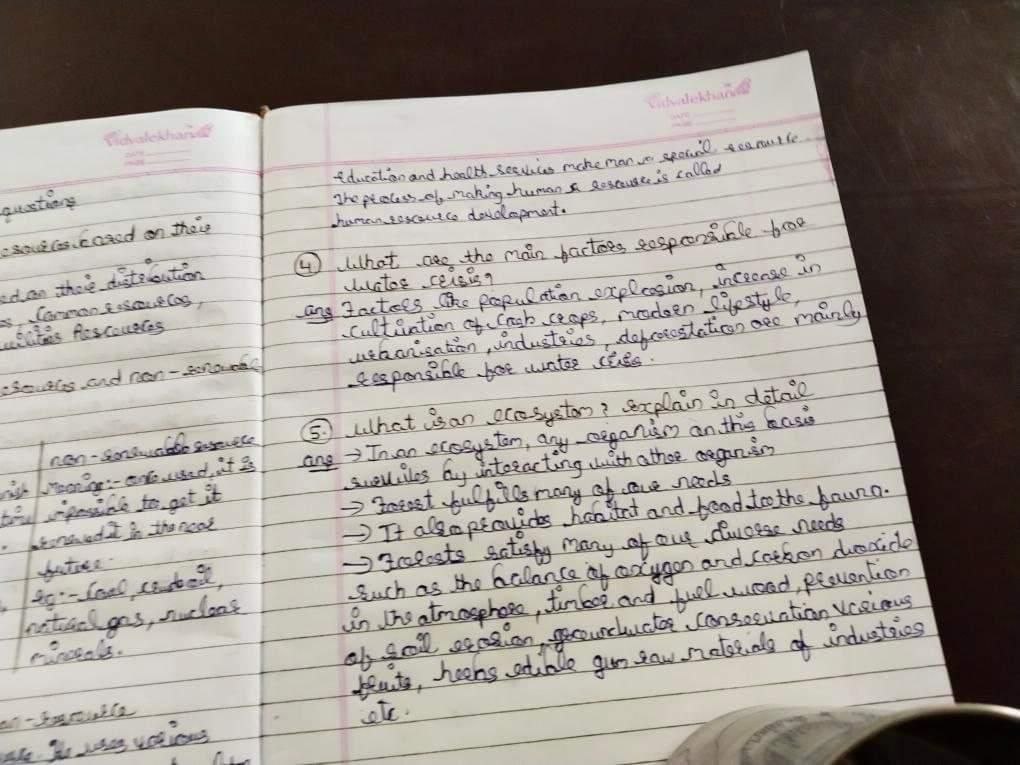 Vidyalekhan
DATE
PAGE
questions
resources based on their
ed on their distribution
Common resources,
Resources
resources and non-renewable
non-renewable resource
Meaning:- once used, it is
impossible to get it
renewed it in the near
future.
eg:- Coal, crudoil,
natural gas, nuclear
minerals.
resource
He uses various
Vidyalekhan
DATE
PAGE
education and health services make man a special resource
The process of making human a resource is called
human resource development.
4 What are the main factors responsible for
water crisis?
ans Factors like population explosion, increase in
cultivation of cash crops, modern lifestyle,
urbanisation, industries, deforestation are mainly
responsible for water crisis.
5. What is an ecosystem? explain in detail
ans → In an ecosystem, any organism on this basis
survives by interacting with other organism
→ Forest fulfills many of our needs
→ It also provides habitat and food to the fauna.
→ Forests satisfy many of our diverse needs
such as the balance of oxygen and carbon dioxide
in the atmosphere, timber and fuel wood, prevention
of soil erosion, groundwater conservation various
fruits, herbs edible gum raw materials of industries
etc.